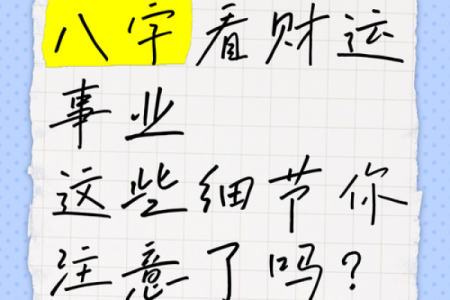 八字看财运
事业
这些细节你
注意了吗?